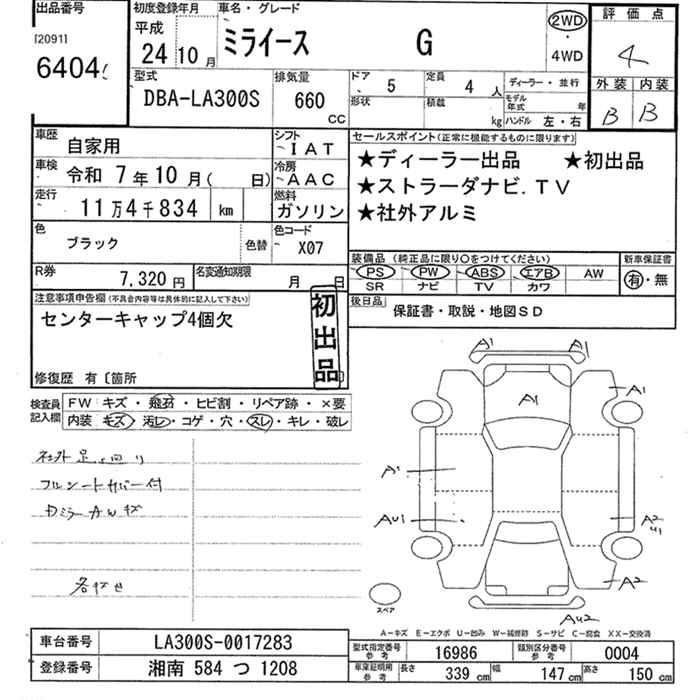 出品番号
[2091]
6404
初度登録年月
平成
24年10月
車名・グレード
ミライース G
2WD
・
4WD
評価点
4
外装 内装
B B
型式
DBA-LA300S
排気量
660
CC
ドア 5
定員 4 人
形状
積載 kg
ディーラー・並行
モデル年式 年
ハンドル 左・右
車歴 自家用
シフト IAT
車検 令和 7年10月( 日)
冷房 AAC
走行 11万4千834 km
燃料 ガソリン
色 ブラック
色替
色コード X07
R券 7,320円
名変通知期限 月 日
セールスポイント(正常に機能するものに限ります)
★ディーラー出品 ★初出品
★ストラーダナビ.TV
★社外アルミ
装備品 (純正品に限り○をつけてください)
PS PW ABS エアB AW
SR ナビ TV カワ
新車保証書
有・無
後日品 保証書・取説・地図SD
注意事項申告欄(不具合内容等は具体的に記入して下さい)
センターキャップ4個欠
初出品
修復歴 有〔箇所
検査員記入欄
FW キズ・飛石・ヒビ割・リペア跡・×要
内装 キズ・汚レ・コゲ・穴・スレ・キレ・破レ
社外足回り
フルシートカバー付
AWキズ
A1 A1
A1
A1
A1
AU1
A2
U1
A2
AU2
スペア
A-キズ E-エクボ U-凹み W-補修跡 S-サビ C-腐食 XX-交換済
車台番号 LA300S-0017283
登録番号 湘南 584 つ 1208
型式指定番号 参考 16986
類別区分番号 参考 0004
車車証明用 参考 長さ 339 cm 幅 147 cm 高さ 150 cm